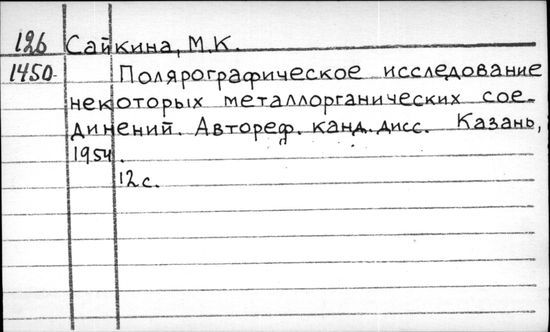 126 Сайкина, М.К.
1450 Полярографическое исследование
некоторых металлорганических сое-
динений. Автореф. канд. дисс. Казань,
1954.
12 с.